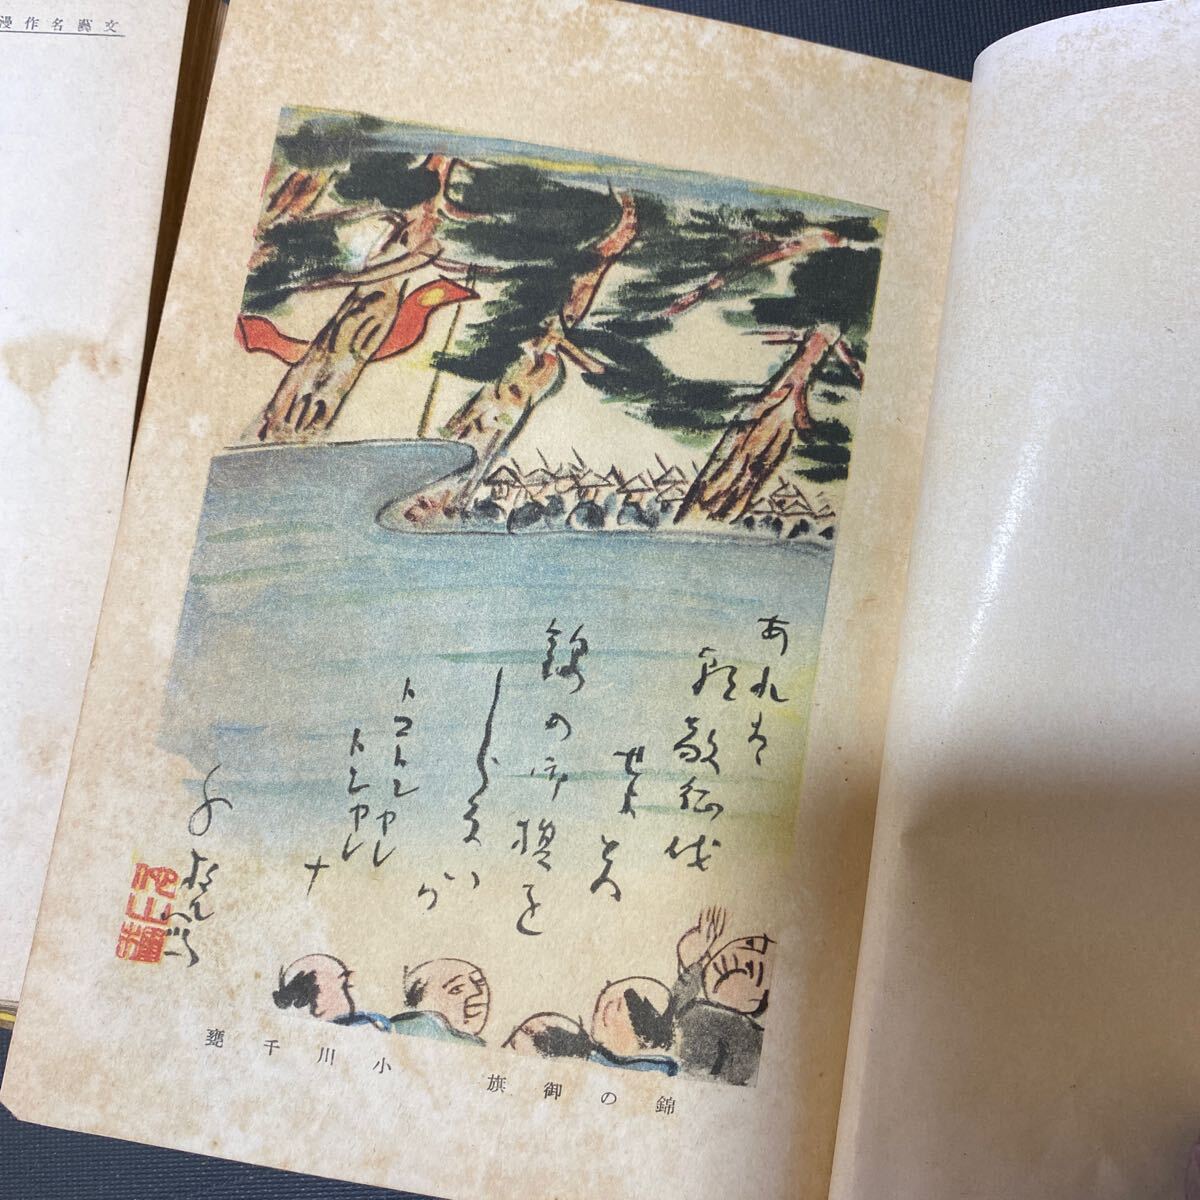 文藝名作漫
あれは
朝敵征伐
せよとの
錦の御旗を
しらないか
トコトンヤレ
トンヤレ
ナ
錦の御旗　小川千甕